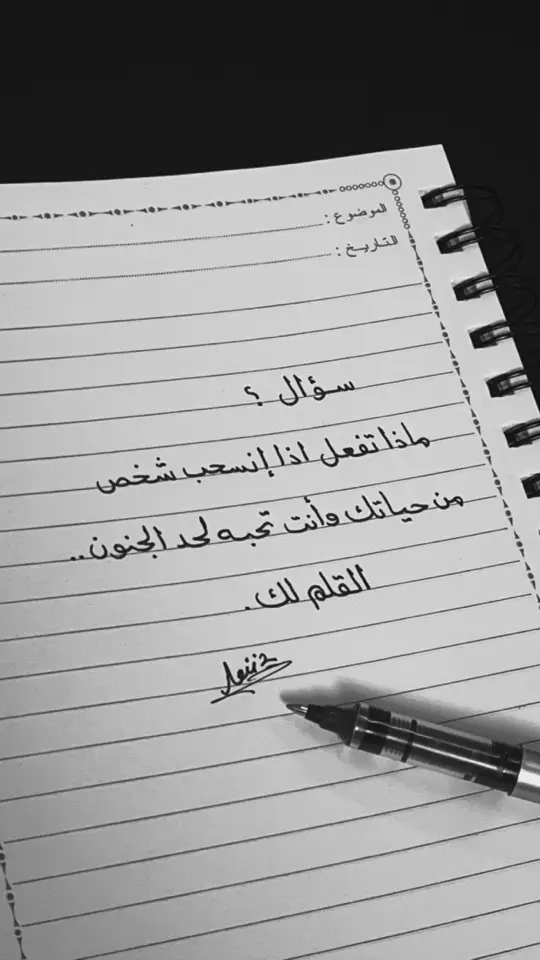 الموضوع :
التاريخ :
سؤال ؟
ماذا تفعل اذا إنسحب شخص
من حياتك وأنت تحبه لحد الجنون..
القلم لك.